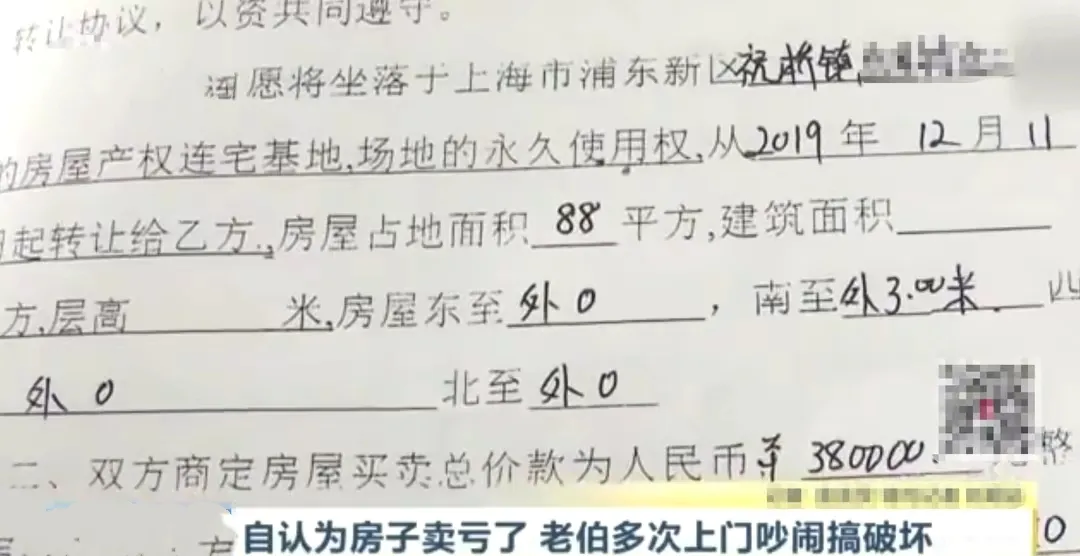 转让协议，以资共同遵守。
愿将坐落于上海市浦东新区祝桥镇
的房屋产权连宅基地,场地的永久使用权,从2019年 12月11
起转让给乙方,房屋占地面积 88 平方,建筑面积
方,层高 米,房屋东至 外0 ，南至外3.00米
外 0 北至 外0
二、双方商定房屋买卖总价款为人民币 380000.
自认为房子卖亏了 老伯多次上门吵闹搞破坏